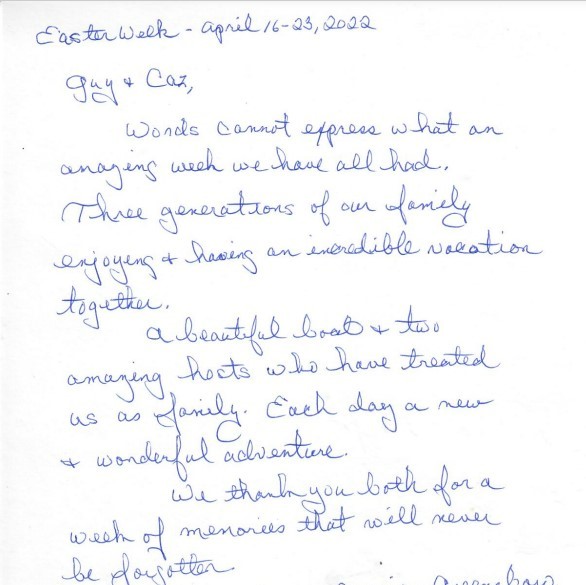 Easter Week - April 16-23, 2022
Guy & Caz,
Words cannot express what an
amazing week we have all had.
Three generations of our family
enjoying & having an incredible vacation
together.
A beautiful boat & two
amazing hosts who have treated
us as family. Each day a new
& wonderful adventure.
We thank you both for a
week of memories that will never
be forgotten